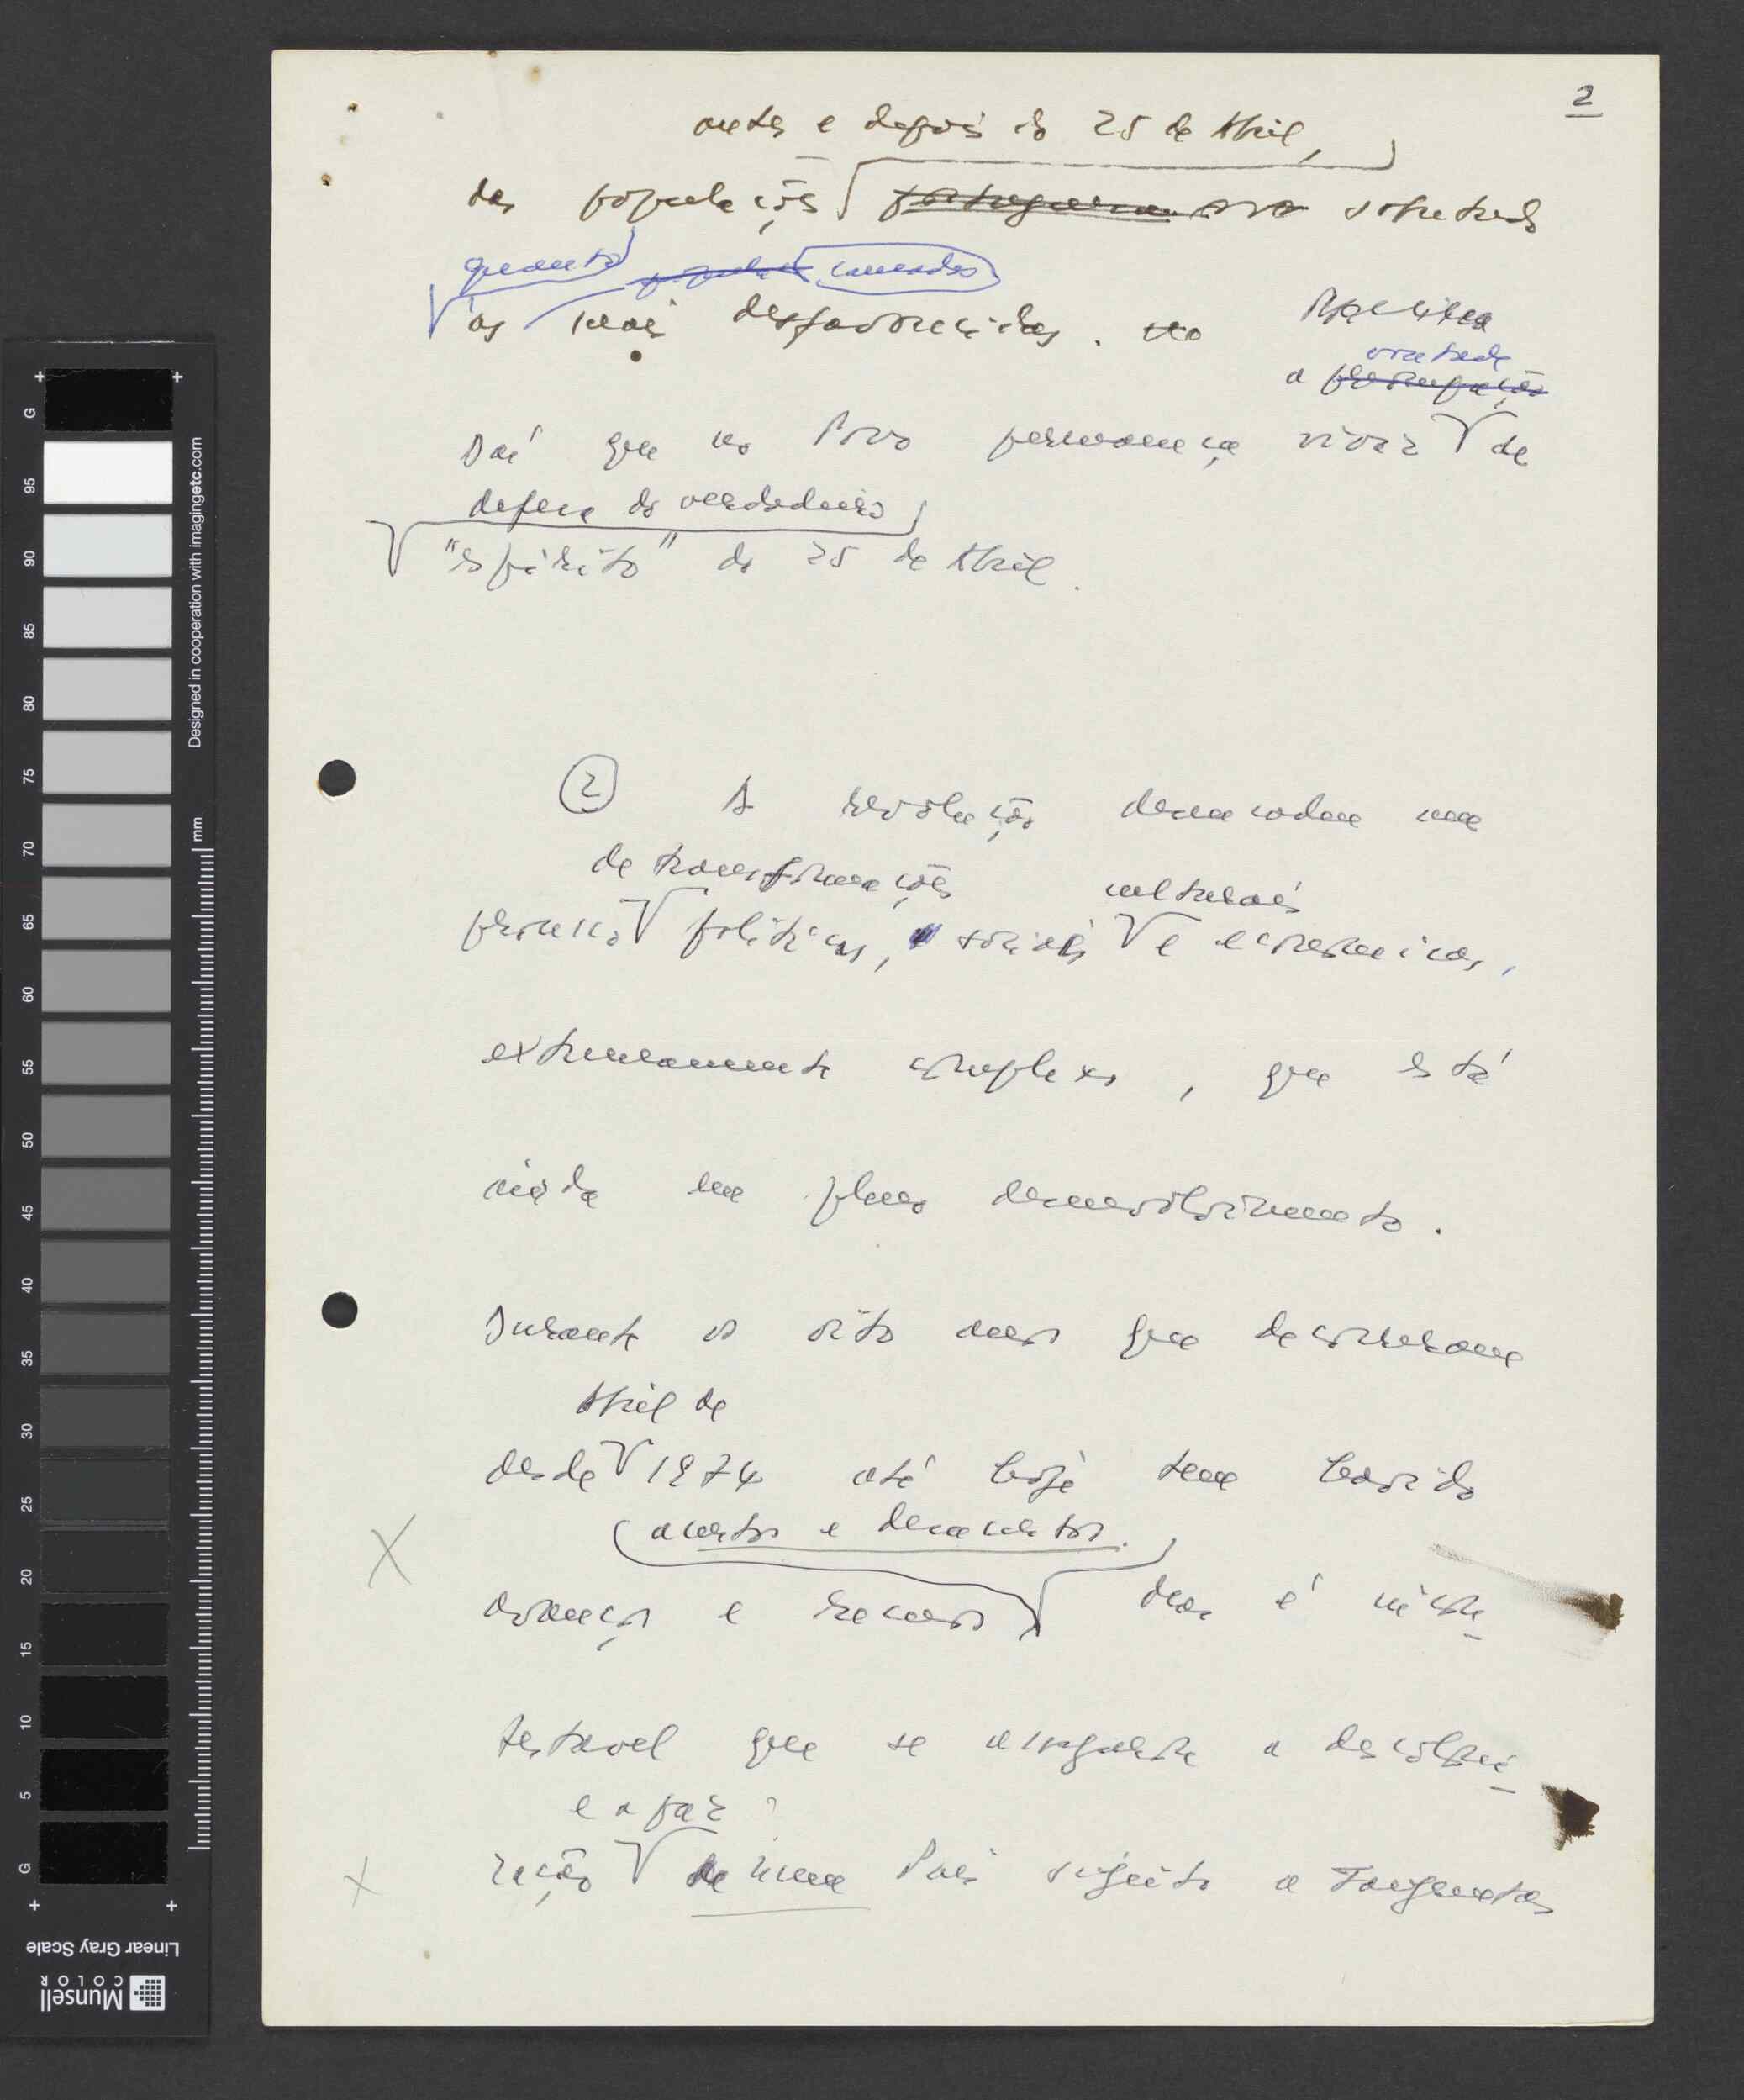 2
antes e depois do 25 de Abril,
das populações portuguesas sobretudo
quanto camadas
às mais desfavorecidas.
a vontade
Daí que no Povo permaneça viva de
defesa do verdadeiro
"espírito" do 25 de Abril.
② A revolução desencadeou um
de transformações culturais
processo políticas, sociais e económicas,
extremamente complexo, que está
ainda em pleno desenvolvimento.
Durante os oito anos que decorreram
Abril de
desde 1974 até hoje tem havido
acertos e desacertos.
avanços e recuos Mas é incon-
testavel que se a descoloni-
e a paz?
zação de num País sujeito a
G
95
90
85
80
75
70
65
60
55
50
45
40
35
30
25
20
15
10
5
G
mm
Designed in cooperation with imagingetc.com
Linear Gray Scale
Munsell
COLOR